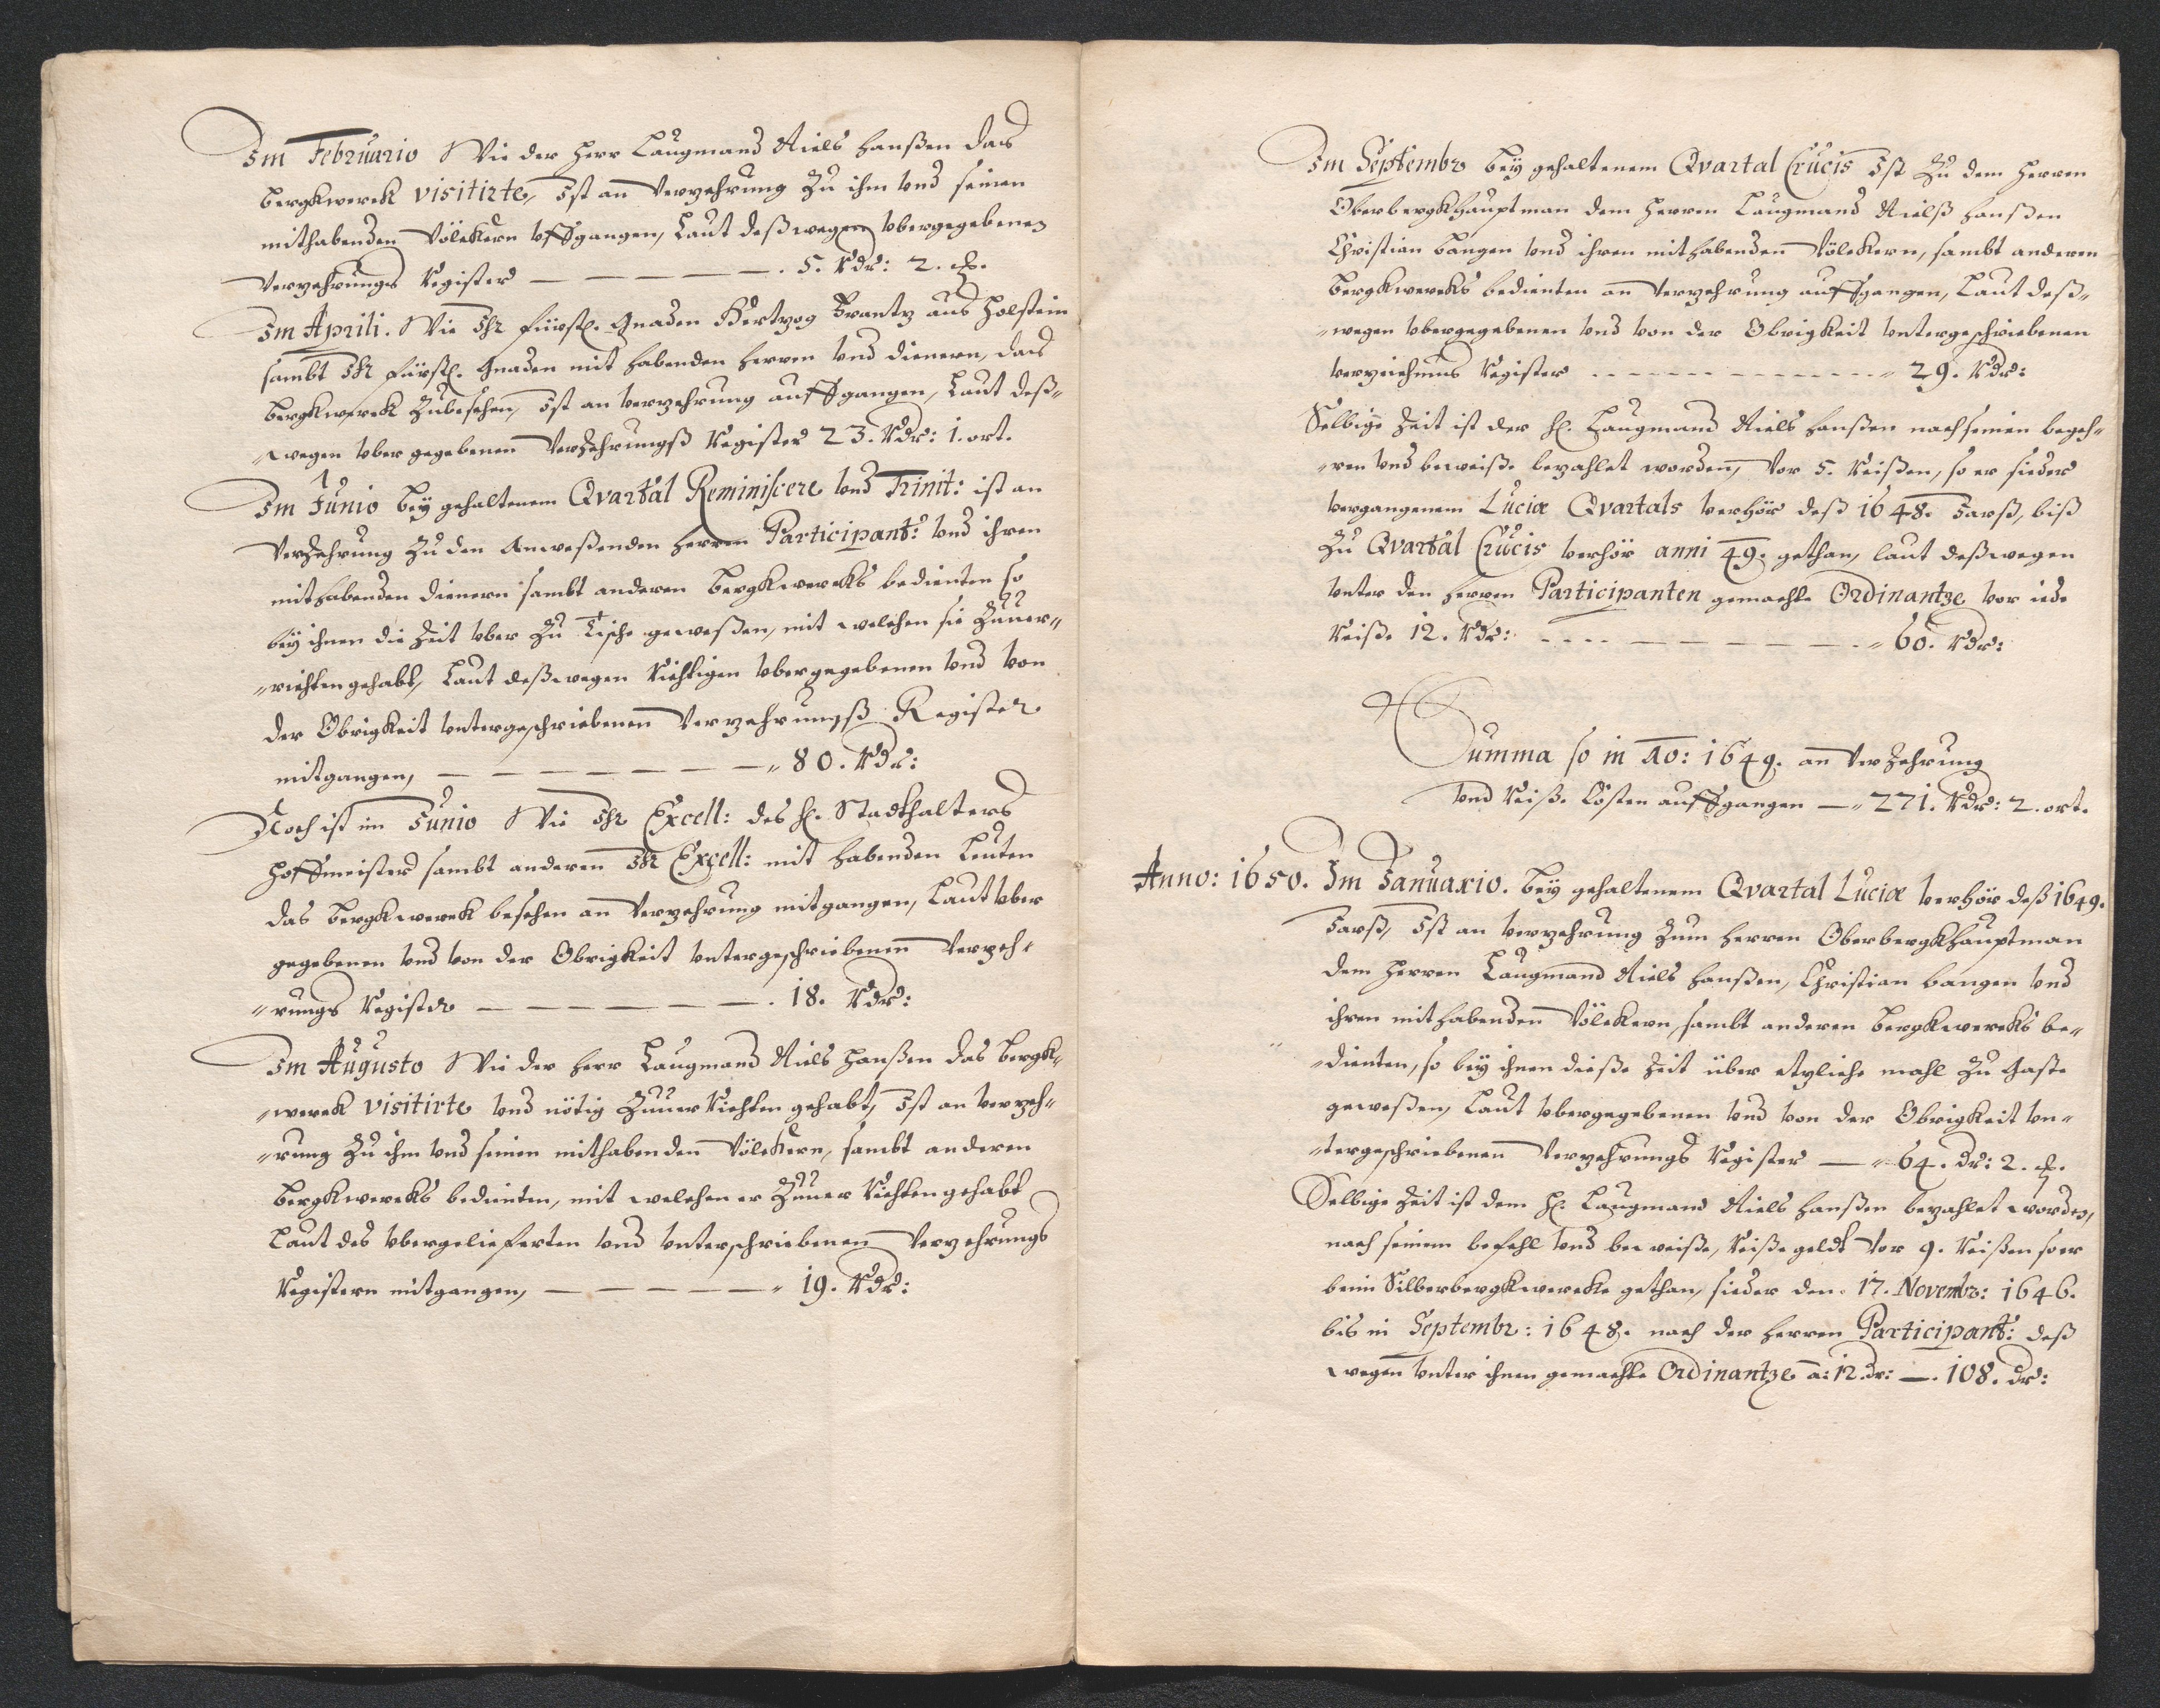 Im Februario Wie der Herr Laugmand Niels Hanßen das
Bergkwerck visitirte, Ist an Verzehrung Zu ihm vnd seinen
mithabenden Völckern vffgangen, Laut deßwegen vbergegebenen
Verzehrungs Register — — — — . 5. Rdr: 2. ß.
Im Aprili. Wie Ihr fürstl. Gnaden Hertzog Frantz aus Holstein
sambt Ihr fürstl. Gnaden mit habenden Herren vnd dienern, das
Bergkwerck Zubesehen, Ist an verzehrung auffgangen, Laut deß„
„wegen vber gegebenen Verzehrungß Register 23. Rdr: 1. ort.
Im Junio bey gehaltenem Qvartal Reminiscere vnd Trinit: ist an
Verzehrung Zu den Anweßenden Herren Participant: vnd ihren
mithabenden dienern sambt anderen Bergkwercks bedienten so
bey ihnen die Zeit vber Zu Tische geweßen, mit welchen sie Zuuer„
„richten gehabt, Laut deßwegen Richtigen vbergegebenen vnd von
der Obrigkeit vntergeschriebenen Verzehrungß Register
mitgangen, — — — — — — „ 80. Rdr:
Noch ist im Junio Wie Ihr Excell: des H. Stadthalters
Hoffmeister sambt anderen Ihr Excell: mit habenden Leuten
das Bergkwerck besehen an Verzehrung mitgangen, Laut vber
gegebenen vnd von der Obrigkeit vntergeschriebenen Verzeh„
„rungs Register — — — — — — . 18. Rdr:
Im Augusto Wie der Herr Laugmand Niels Hanßen das Bergk„
„werck visitirte vnd nötig Zuuer Richten gehabt, Ist an verzeh„
„rung Zu ihm vnd seinen mithabenden Völckern, sambt anderen
Bergkwercks bedienten, mit welchen er Zuuer Richten gehabt
Laut des vbergelieferten vnd vnterschriebenen Verzehrungs
Registern mitgangen, — — — — — „ 19. Rdr:
Im Septembr bey gehaltenem Qvartal Crucis Ist Zu dem Herren
Oberbergkhauptman dem Herren Laugmand Nielß Hanßen
Christian Bangen vnd ihren mithabenden Völckern, sambt anderen
Bergkwercks bedienten an verzehrung auffgangen, Laut deß„
„wegen vbergegebenen vnd von der Obrigkeit vntergeschriebenen
verzeichnus Register - - - - - - - „ 29. Rdr:
Selbige Zeit ist der H. Laugmand Niels Hanßen nach seinen begeh„
„ren vnd beweiße bezahlet worden, vor 5. Reißen, so er sieder
vergangenem Luciæ Qvartals verhör deß 1648. Jarß, biß
Zu Qvartal Crucis verhör anni 49. gethan, laut deßwegen
vnter den Herren Participanten gemachte Ordinantze vor iede
Reiße 12. Rdr: - - - — — — — — „ 60. Rdr:
Summa so in Ao: 1649. an Verzehrung
vnd Reiße Cösten auffgangen — „ 271. Rdr: 2. ort.
Anno: 1650. Im Januario. bey gehaltenem Qvartal Luciæ verhör deß 1649.
Jarß, Ist an verzehrung Zum Herren Oberbergkhauptman
dem Herren Laugmand Niels Hanßen, Christian Bangen vnd
ihren mithabenden Völckern, sambt anderen Bergkwercks be„
„dienten, so bey ihnen dieße Zeit über etzliche mahl Zu Gaste
geweßen, Laut vbergegebenen vnd von der Obrigkeit vn„
„tergeschriebenen Verzehrungs Register — „ 64. dr: 2. ß.
Selbige Zeit ist dem H. Laugmand Niels Hanßen bezahlet worden,
nach seinem befehl vnd beweiße, Reiße geldt vor 9. Reißen so er
beim Silberbergkwercke gethan, sieder den. 17. Novembr: 1646.
bis in Septembr: 1648. nach der Herren Participant: deß
wegen vnter ihnen gemachte Ordinantze a: 12. dr: —. 108. dr: